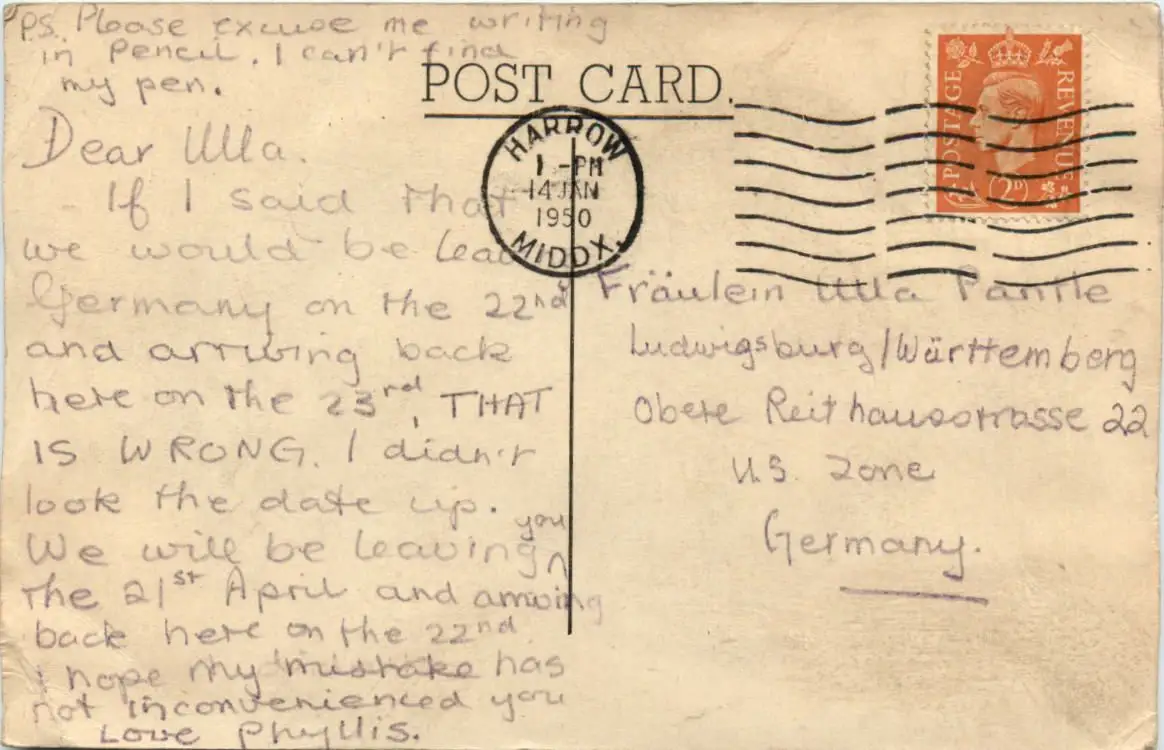 P.S. Please excuse me writing
in pencil. I can't find
my pen.
POST CARD.
Dear Ulla.
If I said that
we would be leav
Germany on the 22nd
and arriving back
here on the 23rd, THAT
IS WRONG. I didn't
look the date up.
We will be leaving you
the 21st April and arriving
back here on the 22nd.
I hope my mistake has
not inconvenienced you
Love Phyllis.
HARROW
1 - PM
14 JAN
1950
MIDDX.
POSTAGE
REVENUE
2D
Fräulein Ulla Pantle
Ludwigsburg/Württemberg
Obere Reithausstrasse 22
U.S. Zone
Germany.